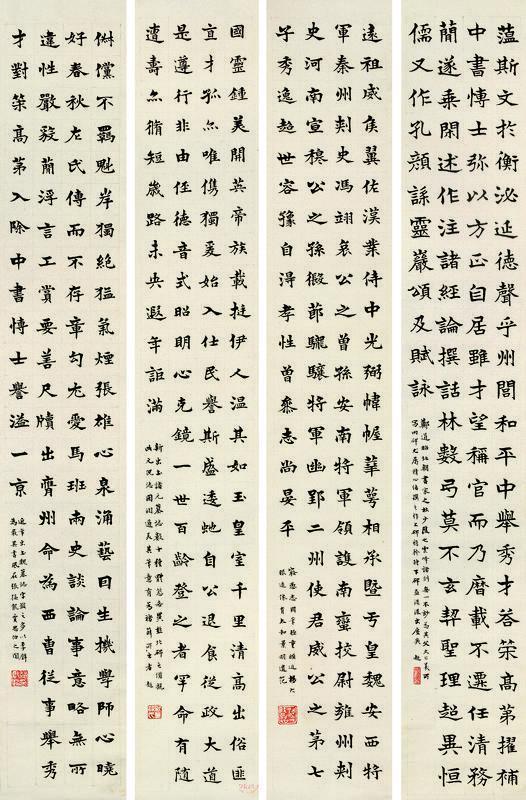 薀斯文於衡泌延德聲乎州閭和平中舉秀才荅策高第擢補
中書博士弥以方正自居雖才望稱官而乃曆載不遷任清務
蕳遂乘閑述作注諸經論撰話林數弓莫不玄契聖理超異恒
儒又作孔顏誄靈巖頌及賦詠
遠祖威侯翼佐漢業侍中光弼幃幄蕐萼相承暨于皇魏安西特
軍秦州刾史馮翊哀公之曾孫安南特軍領護南蠻挍尉雍州刾
史河南宣穆公之孫假節驪驤特軍豳郢二州使君威公之第七
子秀逸超世容豫自淂孝性曾叅志尚晏平
國靈鍾美開英帝族載挺伊人温其如玉皇室千里清高出俗匪
亘才孤亦唯儁獨爰始入仕民譽斯盛逶虵自公退食從政大道
是遵行非由侄德音式昭明心克鏡一世百齡登之者罕命有随
遭壽亦脩短歲路未央遐年詎滿
俶儻不羈魁岸獨絶猛氣煙張雄心泉涌藝因生機學師心曉
好春秋左氏傳而不存章句尤愛馬班兩史談論事意略無所
違性嚴發蕳浮言工賞要善尺牘出齊州命為西曹從事舉秀
才對策高第入除中書博士譽溢一京